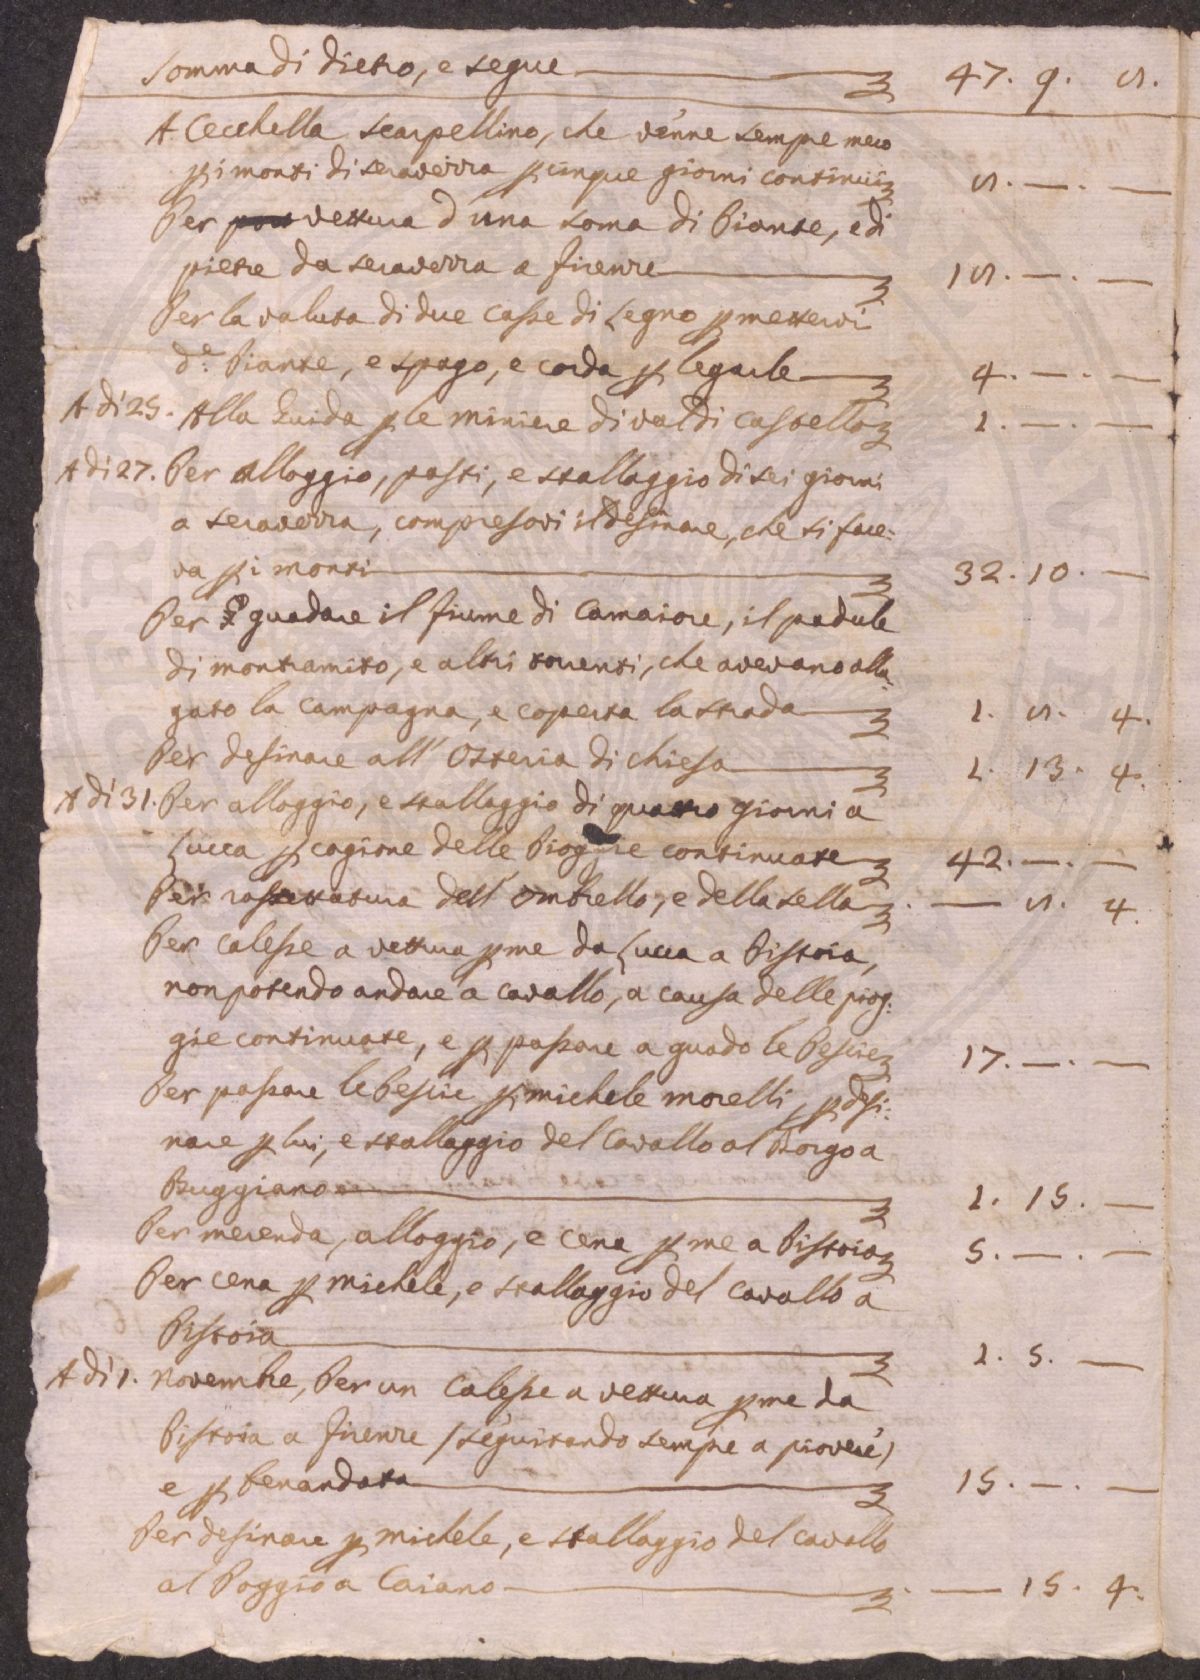 Somma di dietro, e segue 47. 9. 5.
A Cecchella scarpellino, che venne sempre meco
p i monti di Seraverra p cinque giorni continui 5. — . —
Per vettura d'una soma di Piante, e di
pietre da Seraverra a Firenre 15. — . —
Per la valuta di due Casse di Legno p mettervi
d.e Piante, e spago, e corda p legarle 4. — . —
A di 25. Alla Guida p le miniere di val di Castello 1. — . —
A di 27. Per Alloggio, pasti, e stallaggio di sei giorni
a Seraverra, compresovi il desinare, che si face:
va p i monti 32. 10. —
Per guadare il fiume di Camaiore, il padule
di montramito, e altri torrenti, che avevano alla:
gato la Campagna, e coperta la strada 1. 5. 4.
Per desinare all'Osteria di Chiesa 1. 13. 4.
A di 31. Per alloggio, e stallaggio di quattro giorni a
Lucca p cagione delle Pioggie continuate 42. — . —
Per rassettatura dell'Ombrello, e della sella . — 5. 4.
Per Calesse a vettura p me da Lucca a Pistoia,
non potendo andare a cavallo, a causa delle piog:
gie continuate, e p passare a guado le Pescie 17. — . —
Per passare le Pescie p michele morelli, p desi:
nare p lui, e stallaggio del Cavallo al Borgo a
Buggiano 1. 15. —
Per merenda, alloggio, e cena p me a Pistoia 5. — . —
Per cena p Michele, e stallaggio del cavallo a
Pistoia 1. 5. —
A di 1. Novembre, Per un Calesse a vettura p me da
Pistoia a Firenre (seguitando sempre a piovere)
e p benandata 15. — . —
Per desinare p michele, e stallaggio del cavallo
al Poggio a Caiano . — 15. 4.